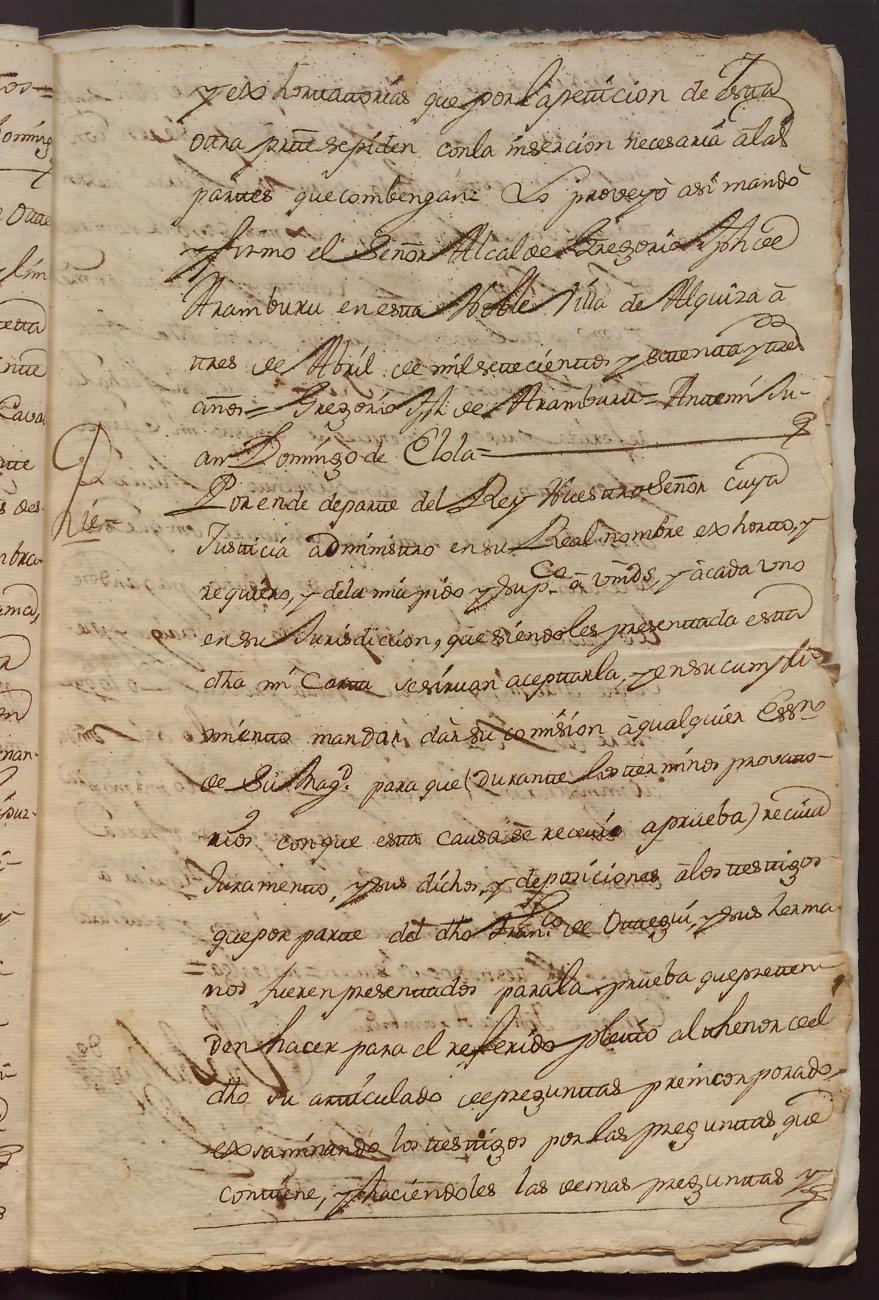 7
y exhortatorias que por la peticion de esta
otra prte se piden con la insercion necesaria à las
partes que combengan: Lo proveyò asi mandò
y firmò el Señor Alcalde Gregorio Jph de
Aramburu en esta Noble Villa de Alquiza à
tres de Abril de mil setecientos y setenta y tres
años = Gregorio Jph de Aramburu = Antemi Ju-
an Domingo de Elola =
Por ende de parte del Rey Nuestro Señor cuya
Justicia administro en su Real nombre exhorto, y
requiero, y dela mia pido y sup.co à vmds, y à cada vno
en su Jurisdicion, que siendoles presentada esta
dha mi Carta se sirvan aceptarla, y en su cumpli-
miento mandar dàr su comision à qualquier Essno
de Su Magd. para que (durante los terminos provato-
rios con que esta causa se recevio aprueba) reciva
Juramento, y sus dichos, y deposiciones à los testigos
que por parte del dho Fran.co de Otaegui, y sus herma
nos fueren presentados para la prueba que preten-
den hacer para el referido pleito al thenor de el
dho su articulado de preguntas preincorporado
exsaminando los testigos por las preguntas que
contiene, y haciendoles las demas preguntas y